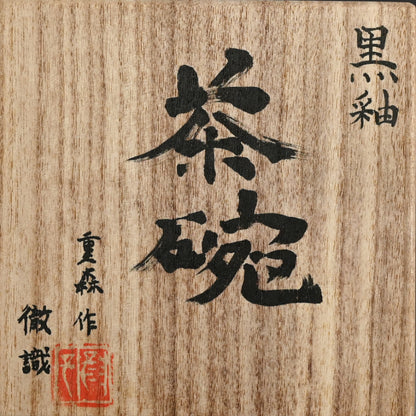 黒釉
茶碗
重森作
徹識